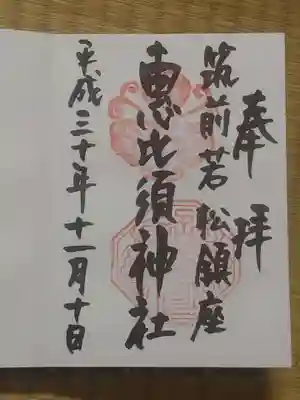 奉拝
筑前若松鎮座
恵比須神社
平成三十年十一月十日